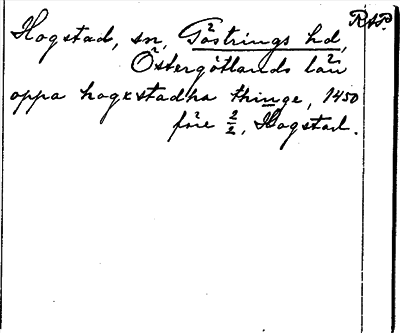 Hogstad, sn, Göstrings hd, RAP.
Östergötlands län
oppa hogxstadha thinge, 1450
före 2/2, Hogstad.